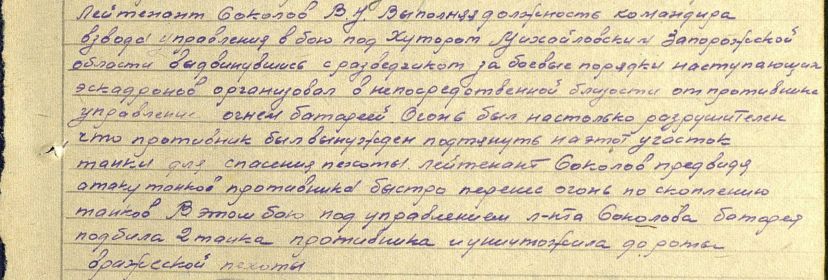 Лейтенант Соколов В.У. Выполняя должность командира
взвода управления в бою под Хутором Михайловским Запорожской
области выдвинувшись с разведчиком за боевые порядки наступающих
эскадронов организовал в непосредственной близости от противника
управление огнем батареей. Огонь был настолько разрушителен
что противник был вынужден подтянуть на этот участок
танки для спасения пехоты. Лейтенант Соколов предвидя
атаку танков противника быстро перенес огонь по скоплению
танков В этом бою под управлением л-нта Соколова батарея
подбила 2 танка противника и уничтожила до роты
вражеской пехоты